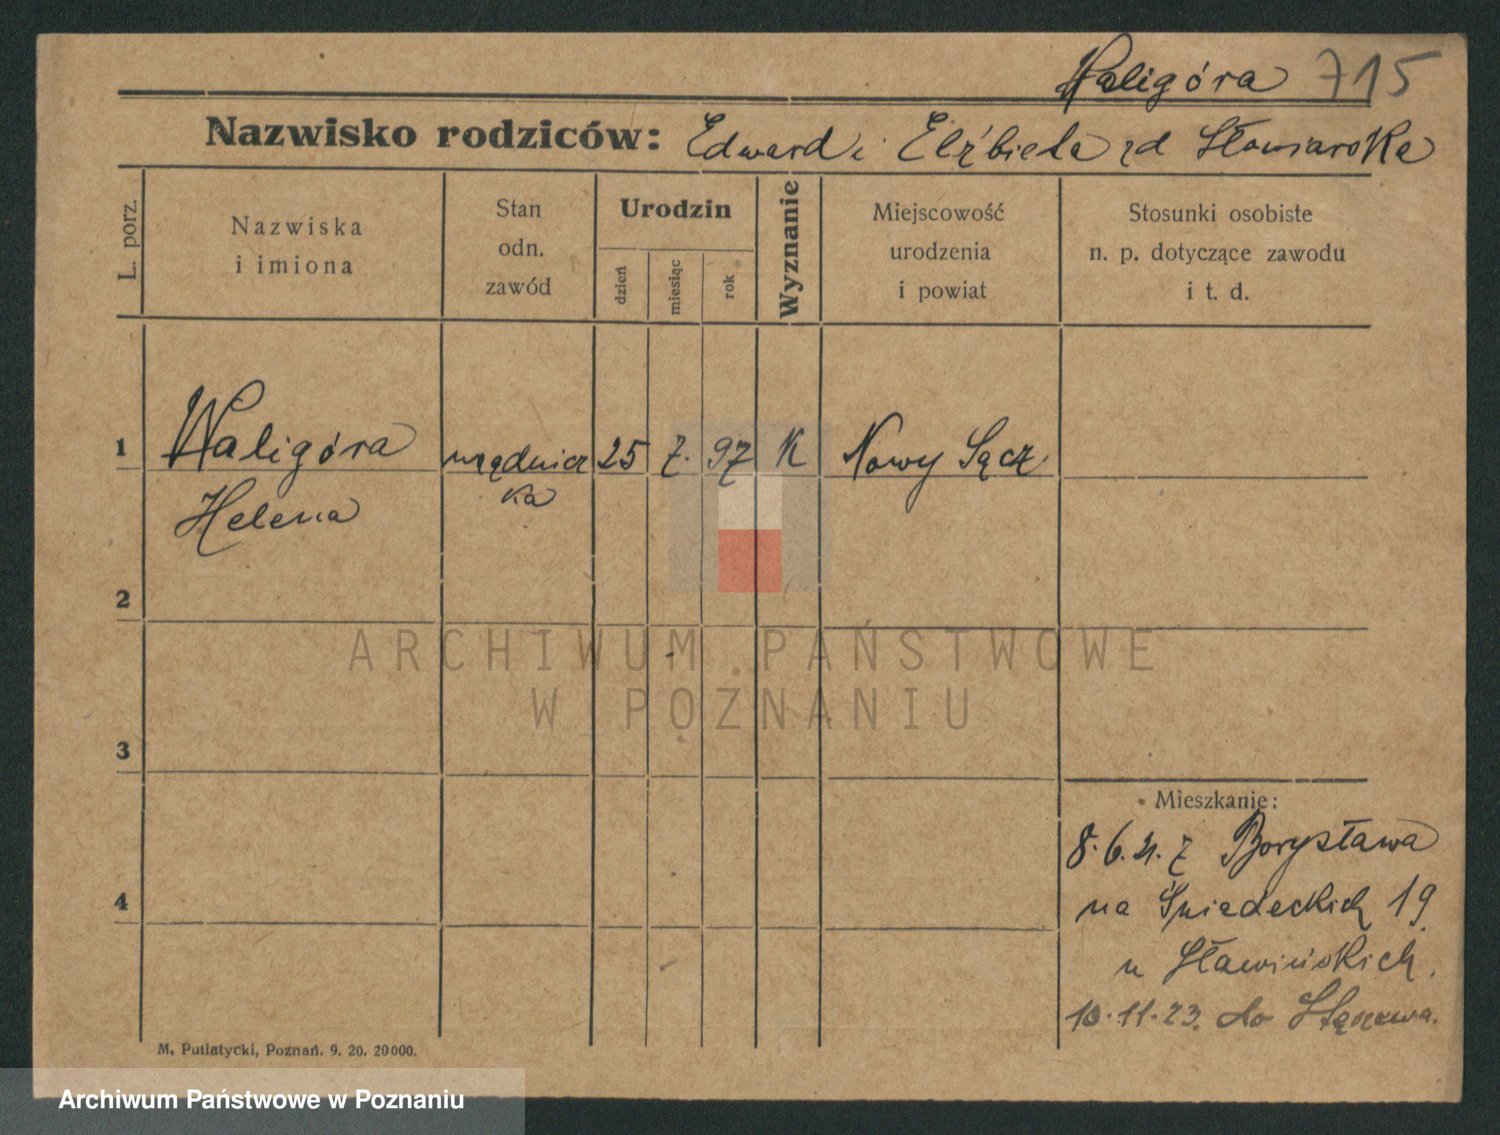 Waligóra 715
Nazwisko rodziców: Edward i Elżbieta zd Słowiarska
L. porz.
Nazwiska
i imiona
Stan
odn.
zawód
Urodzin
dzień
miesiąc
rok
Wyznanie
Miejscowość
urodzenia
i powiat
Stosunki osobiste
n. p. dotyczące zawodu
i t. d.
1 Waligóra urzędnicz 25 7. 97 K Nowy Sącz
Helena ka
2
3
4
ARCHIWUM PAŃSTWOWE
W POZNANIU
Mieszkanie:
8.6.21. z Borysława
na Śniadeckich 19
u Sławińskich.
10.11.23. do Stęszewa.
M. Putiatycki, Poznań. 9. 20. 20000.
Archiwum Państwowe w Poznaniu